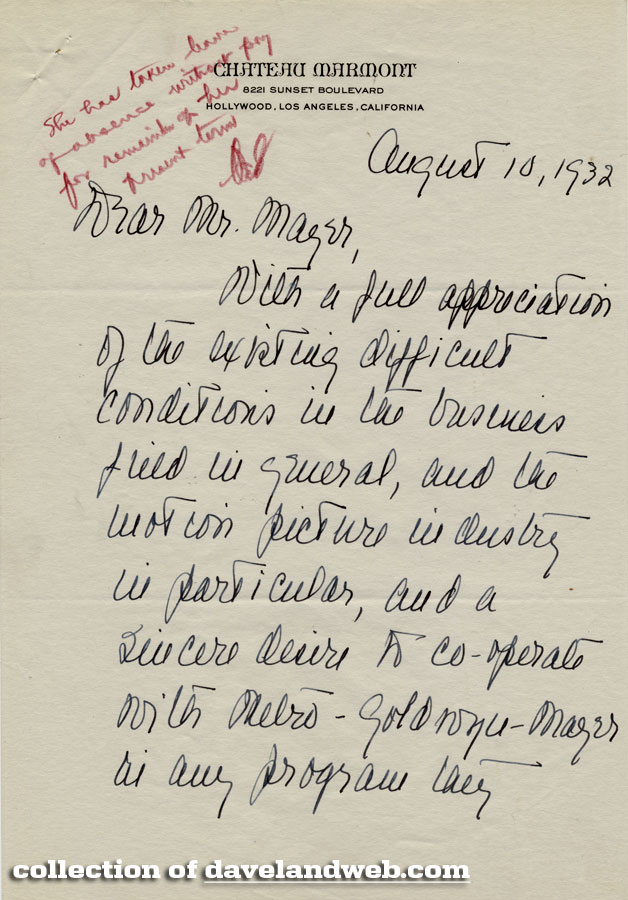 She has taken leave
of absence without pay
for remainder of her
present term
CHATEAU MARMONT
8221 SUNSET BOULEVARD
HOLLYWOOD, LOS ANGELES, CALIFORNIA
August 10, 1932
Dear Mr. Mayer,
With a full appreciation
of the existing difficult
conditions in the business
field in general, and the
motion picture industry
in particular, and a
sincere desire to co-operate
with Metro-Goldwyn-Mayer
in any program they
collection of davelandweb.com